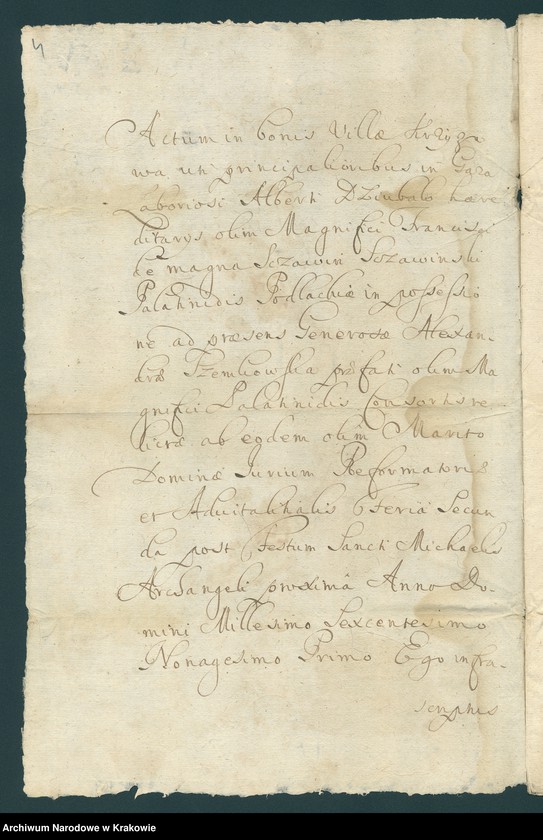 4
Actum in bonis Villæ Krzyzo
wa uti principalioribus in Gaza
Laboriosi Alberti Dziubało hære
ditarys olim Magnifici Francisci
de magna Sczawin Sczawinski
Palatinidis Podlachiæ in possessio
ne ad præsens Generosæ Alexan-
dræ Trzembowska præfati olim Ma
gnifici Palatinidis Consortis re
lictæ ab eodem olim Marito
Dominæ Iurium Reformatoris
et Advitalitialis Feria Secun
da post Festum Sancti Michaelis
Archangeli proximâ Anno Do-
mini Millesimo Sexcentesimo
Nonagesimo Primo Ego infra-
scriptus
Archiwum Narodowe w Krakowie